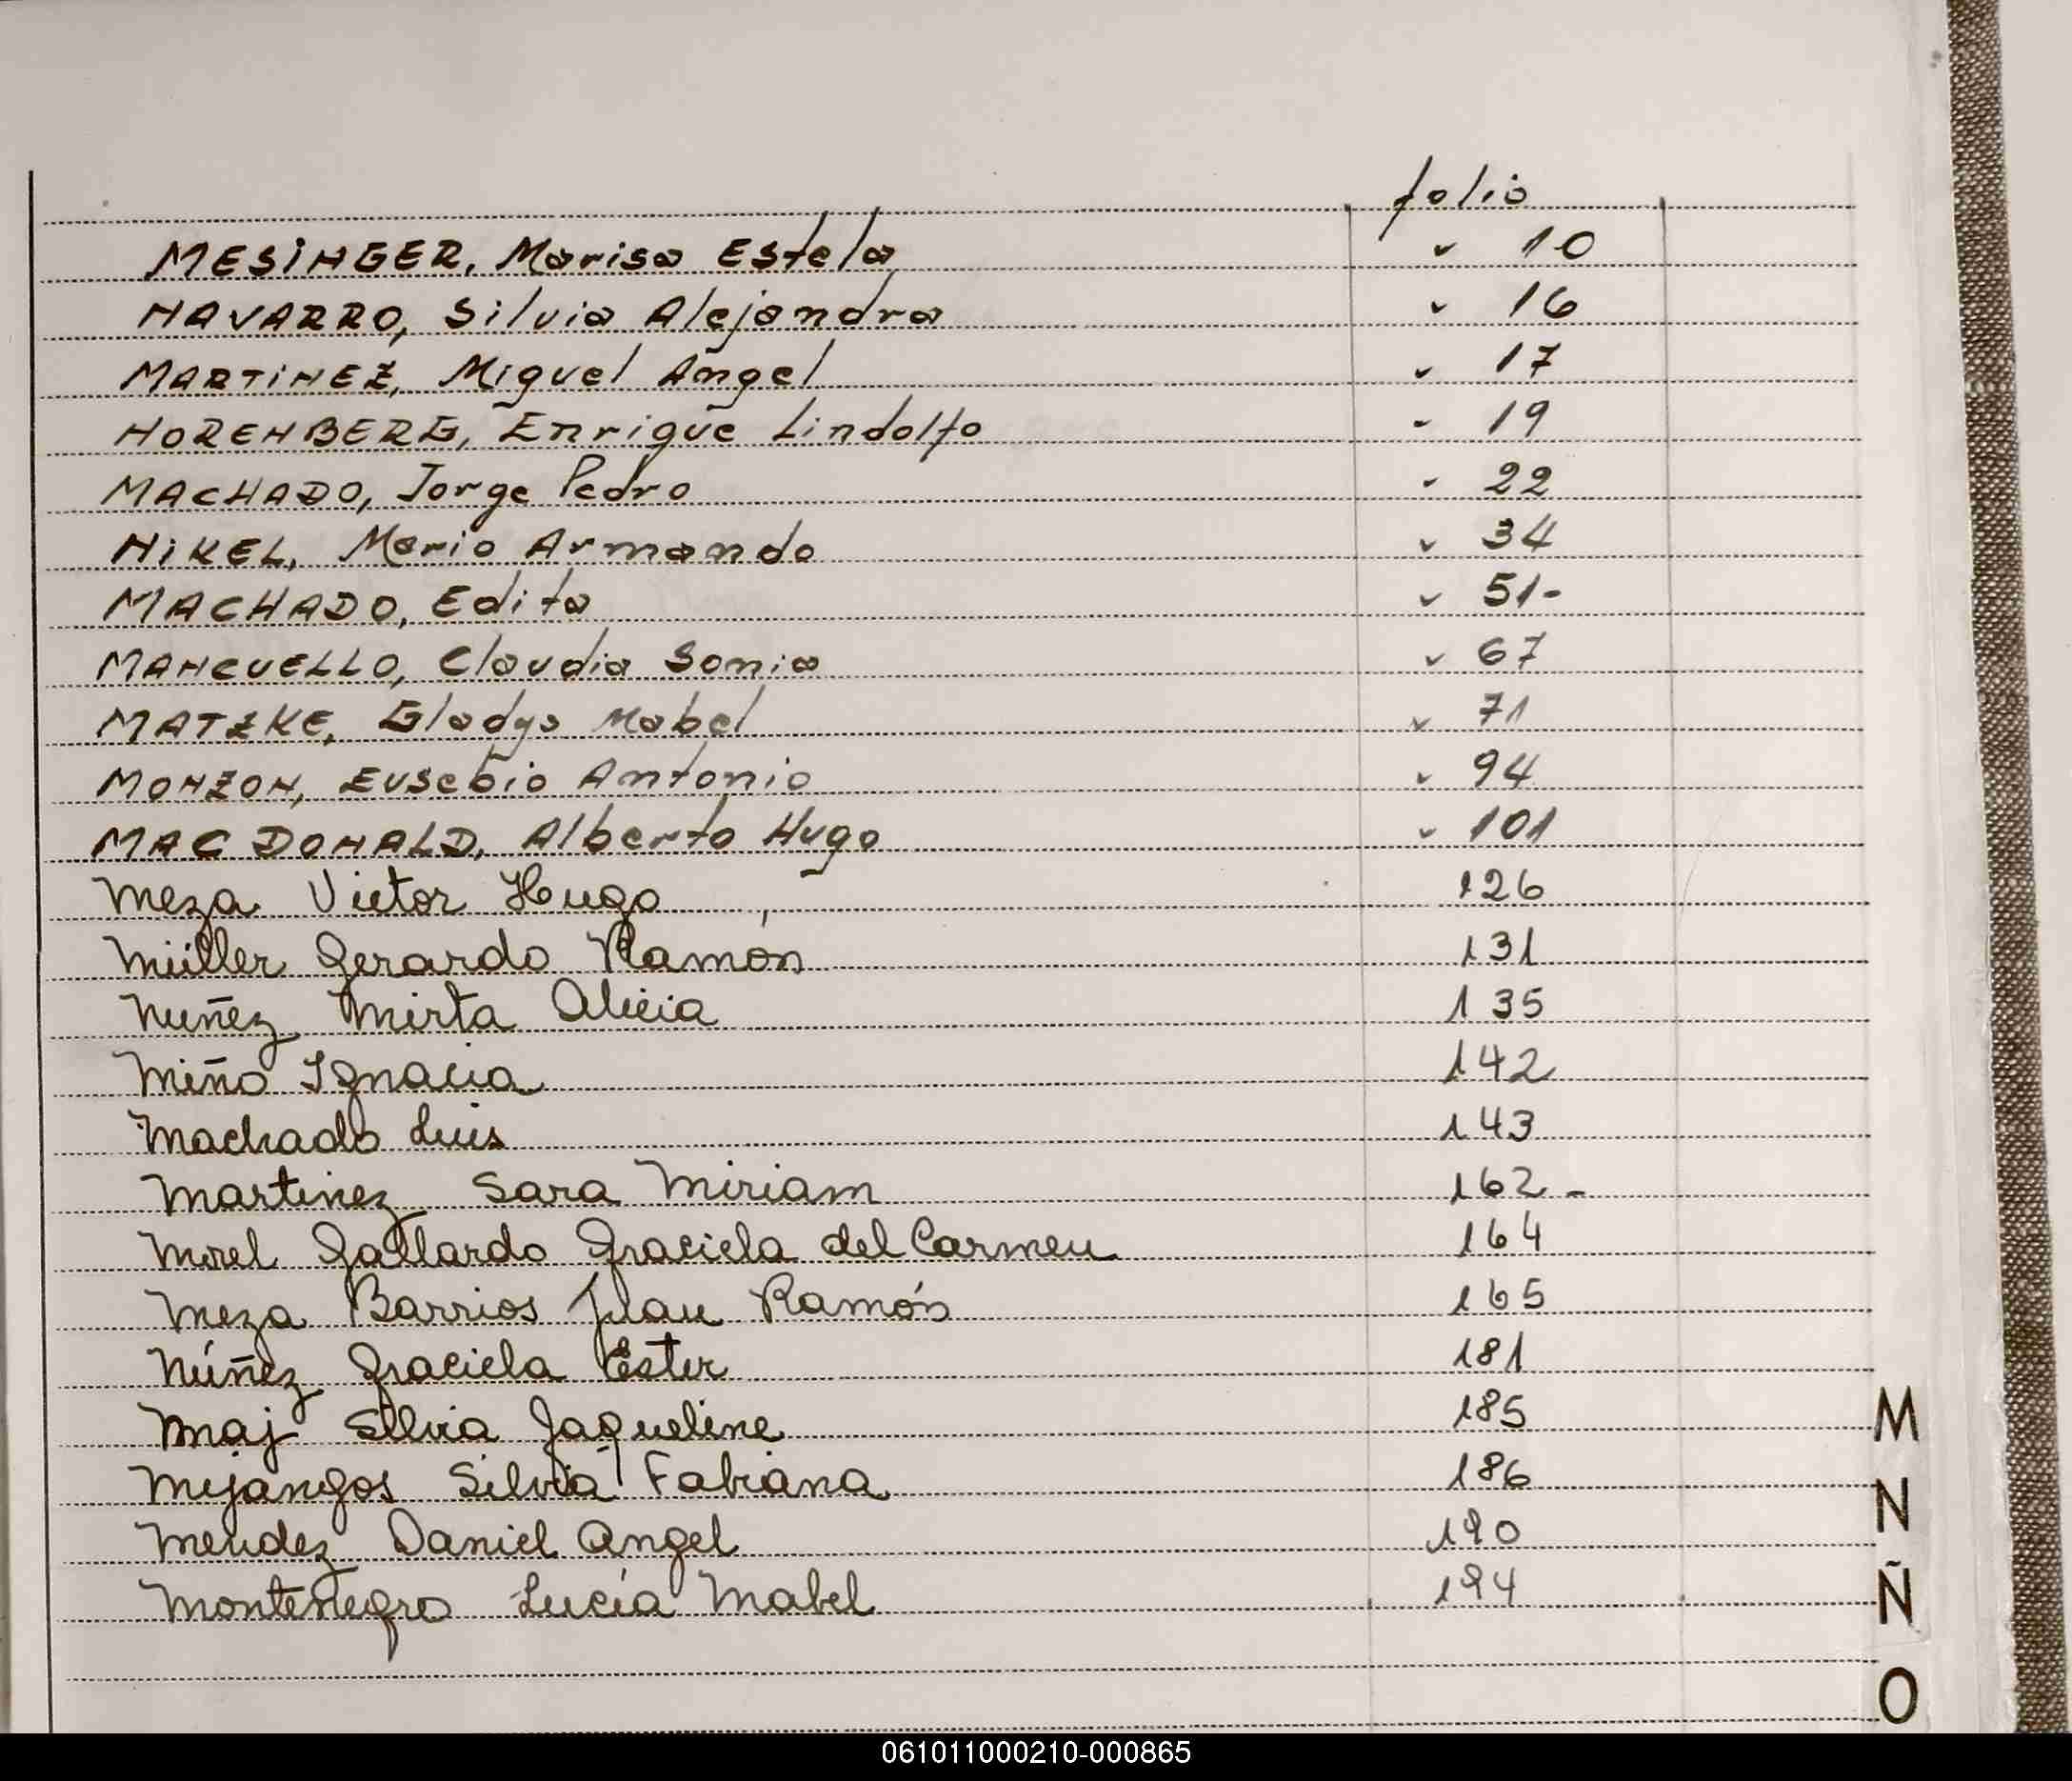 folio
MESINGER, Marisa Estela " 10
NAVARRO, Silvia Alejandra " 16
MARTINEZ, Miguel Angel " 17
NORENBERG, Enrique Lindolfo " 19
MACHADO, Jorge Pedro " 22
NIKEL, Mario Armando " 34
MACHADO, Edita " 51-
MANCUELLO, Claudia Sonia " 67
MATZKE, Gladys Mabel " 71
MONZON, Eusebio Antonio " 94
MAC DONALD, Alberto Hugo " 101
Meza Victor Hugo, 126
Müller Gerardo Ramón 131
Nuñez Mirta Alicia 135
Miño Ignacia 142
Machado Luis 143
Martinez Sara Miriam 162-
Morel Gallardo Graciela del Carmen 164
Meza Barrios Juan Ramón 165
Núñez Graciela Ester 181
Maj Silvia Jaqueline 185
Mejangos Silvia Fabiana 186
Mendez Daniel Angel 190
Montenegro Lucía Mabel 194
M
N
Ñ
O
061011000210-000865